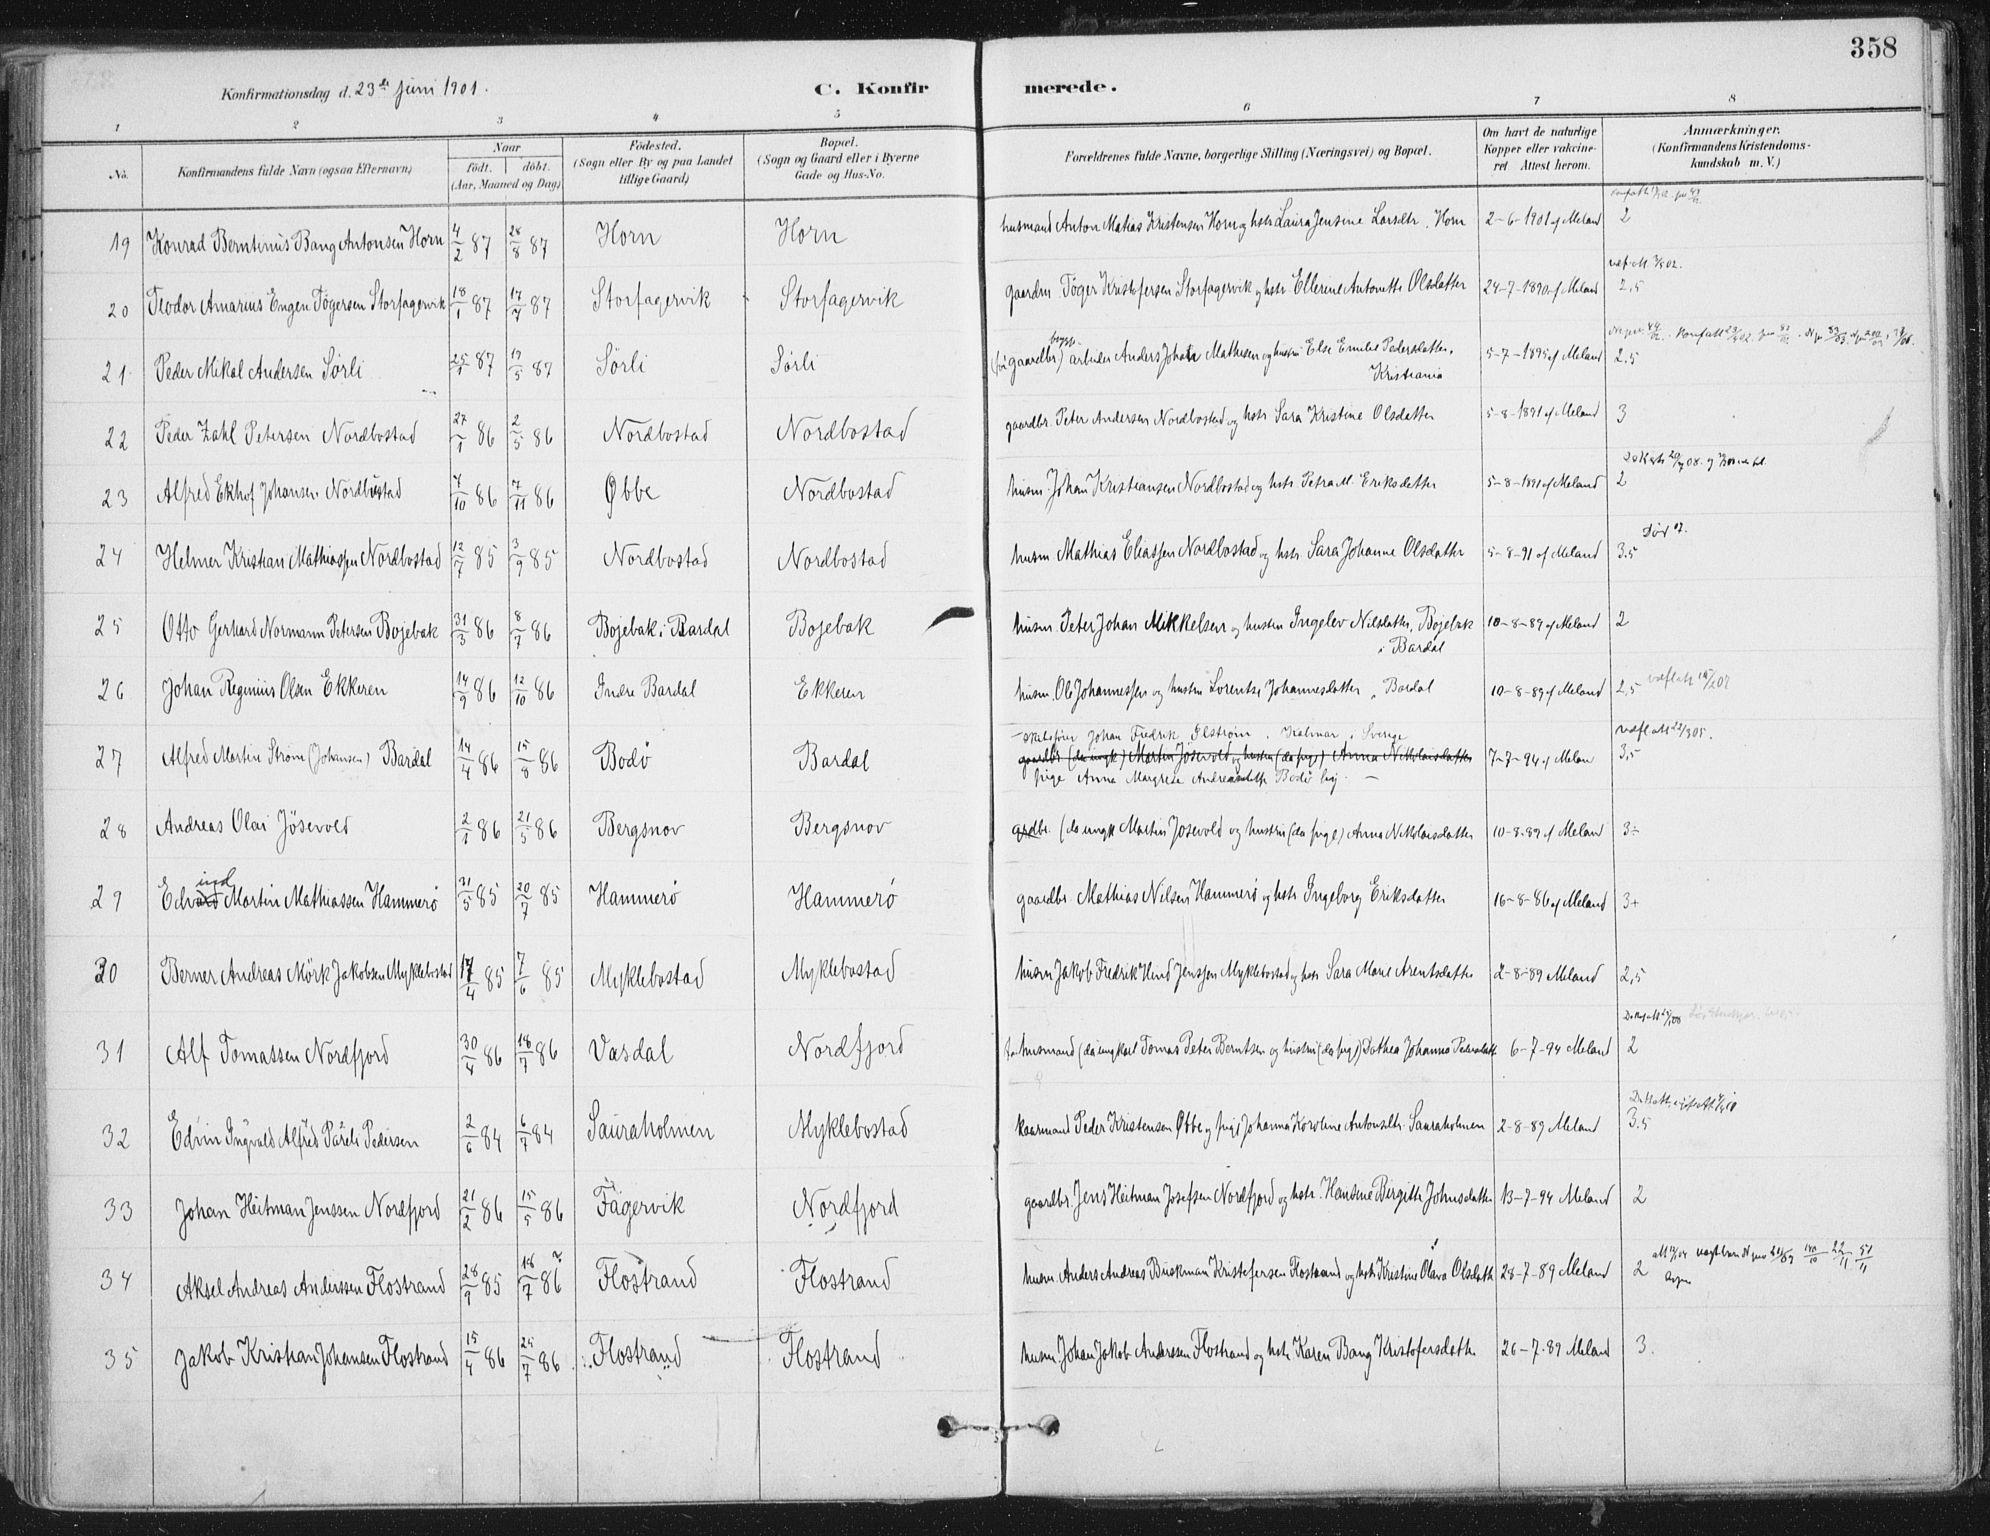 358
Konfirmationsdag d. 23de Juni 1901.
C. Konfirmerede.
1 2 3 4 5 6 7 8
No.
Konfirmandens fulde Navn (ogsaa Efternavn)
Naar
födt. döbt.
(Aar, Maaned og Dag)
Födested.
(Sogn eller By og paa Landet
tillige Gaard)
Bopæl.
(Sogn og Gaard eller i Byerne
Gade og Hus-No.
Forældrenes fulde Navne, borgerlige Stilling (Næringsvei) og Bopæl.
Om havt de naturlige
Kopper eller vakcine-
ret. Attest herom.
Anmærkninger.
(Konfirmandens Kristendoms-
kundskab m. V.)
19 Konrad Berntinus Bang Antonsen Horn 4/2 87 28/8 87 Horn Horn husmand Anton Matias Kristensen Horn og hstr Laura Jensine Larsdtr. Horn 2-6-1901 af Meland 2
20 Teodor Amarius Engen Tögersen Storfagervik 18/1 87 17/7 87 Storfagervik Storfagervik gaardm. Töger Kristofersen Storfagervik og hstr Ellerine Antonette Olsdatter 24-7-1890 af Meland 2,5
21 Peder Mikal Andersen Sörli 25/1 87 19/5 87 Sörli Sörli (fv gaardbr) arbeider Anders Johan Mathisen og hustru Else Emilie Pedersdatter, 5-7-1895 af Meland 2.5
Kristiania
22 Peder Zahl Petersen Nordbostad 27/1 86 2/5 86 Nordbostad Nordbostad gaardbr. Peter Andersen Nordbostad og hstr Sara Kristine Olsdatter 5-8-1891 af Meland 3
23 Alfred Ekhof Johansen Nordbostad 7/10 86 7/11 86 Øbbe Nordbostad husm. Johan Kristiansen Nordbostad og hstr. Petra M. Eriksdatter 5-8-1891 af Meland 2
Död
24 Helmer Kristian Mathiassen Nordbostad 12/7 85 3/9 85 Nordbostad Nordbostad husm Mathias Eliassen Nordbostad og hstr. Sara Johanne Olsdatter 5-8-91 af Meland 3.5
25 Otto Gerhard Normann Petersen Bojebak 31/3 86 8/7 86 Bojebak i Bardal Bojebak husm Peter Johan Mikkelsen og hustru Ingelev Nilsdatter, Bojebak 10-8-89 af Meland 2
i Bardal
26 Johan Reginius Olsen Ekkeren 14/9 86 12/10 86 Indre Bardal Ekkeren husm. Ole Johannessen og hustru Lorentse Johannesdatter, Bardal 10-8-89 af Meland 2,5
Johan Fredrik Elström, Kalmar i Sverige
27 Alfred Martin Ström (Johansen) Bardal 14/4 86 15/8 86 Bodö Bardal gaardbr (da ungk) Martin Jösevold og hustru (da pige) Anna Nikolaisdatter 7-7-94 af Melan 3,5
pige Anna Margrete Andreasdatter Bodö
28 Andreas Olai Jösevold 2/1 86 21/5 86 Bergsnov Bergsnov grdbr. (da ungk Martin Josevold og hustru (da pige) Anna Nikolaisdatter 10-8-89 af Meland 3÷
ind
29 Edvard Martin Mathiassen Hammerö 31/5 85 20/7 85 Hammerö Hammerö gaardbr. Mathias Nilsen Hammerö og hstr Ingeborg Eriksdatter 16-8-86 af Meland 3+
30 Berner Andreas Mörk Jakobsen Myklebostad 17/4 85 7/6 85 Myklebostad Myklebostad husm Jakob Fredrik Hind Jenssen Myklebostad og hstr Sara Marie Arentsdatter 2-8-89 Meland 2,5
31 Alf Tomassen Nordfjord 30/4 86 18/7 86 Vasdal Nordfjord husmand (da ungkarl Tomas Peter Berntsen og hustru (da pige) Dothea Johanna Pedersdatt 6-7-94 Meland 2
32 Edvin Ingvald Alfred Päreli Pedersen 2/6 84 6/7 84 Sauraholmen Myklebostad kaarmand Peder Kristensen Øbbe og pige Johanna Karoline Antonsdtr. Sauraholmen 2-8-89 Meland 3,5
33 Johan Heitman Jenssen Nordfjord 21/2 86 15/5 86 Fagervik Nordfjord gaardbr. Jens Heitman Josefsen Nordfjord og hstr. Hansine Birgitte Johnsdatter 13-7-94 Meland 2
34 Aksel Andreas Anderssen Flostrand 28/9 85 18/7 86 ? Flostrand Flostrand husm. Anders Andreas Brinkman Kristofersen Flostrand og hstr Kristine Olava Olsdatt 28-7-89 Meland 2
35 Jakob Kristian Johansen Flostrand 15/4 86 25/7 86 Flostrand Flostrand husm. Johan Jakob Andersen Flostrand og hstr. Karen Bang Kristofersdatter 26-7-89 Meland 3.